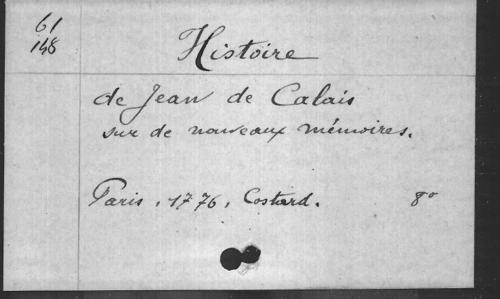 61
148
Histoire
de Jean de Calais
sur de nouveaux mémoires.
Paris, 1776, Costard. 8°